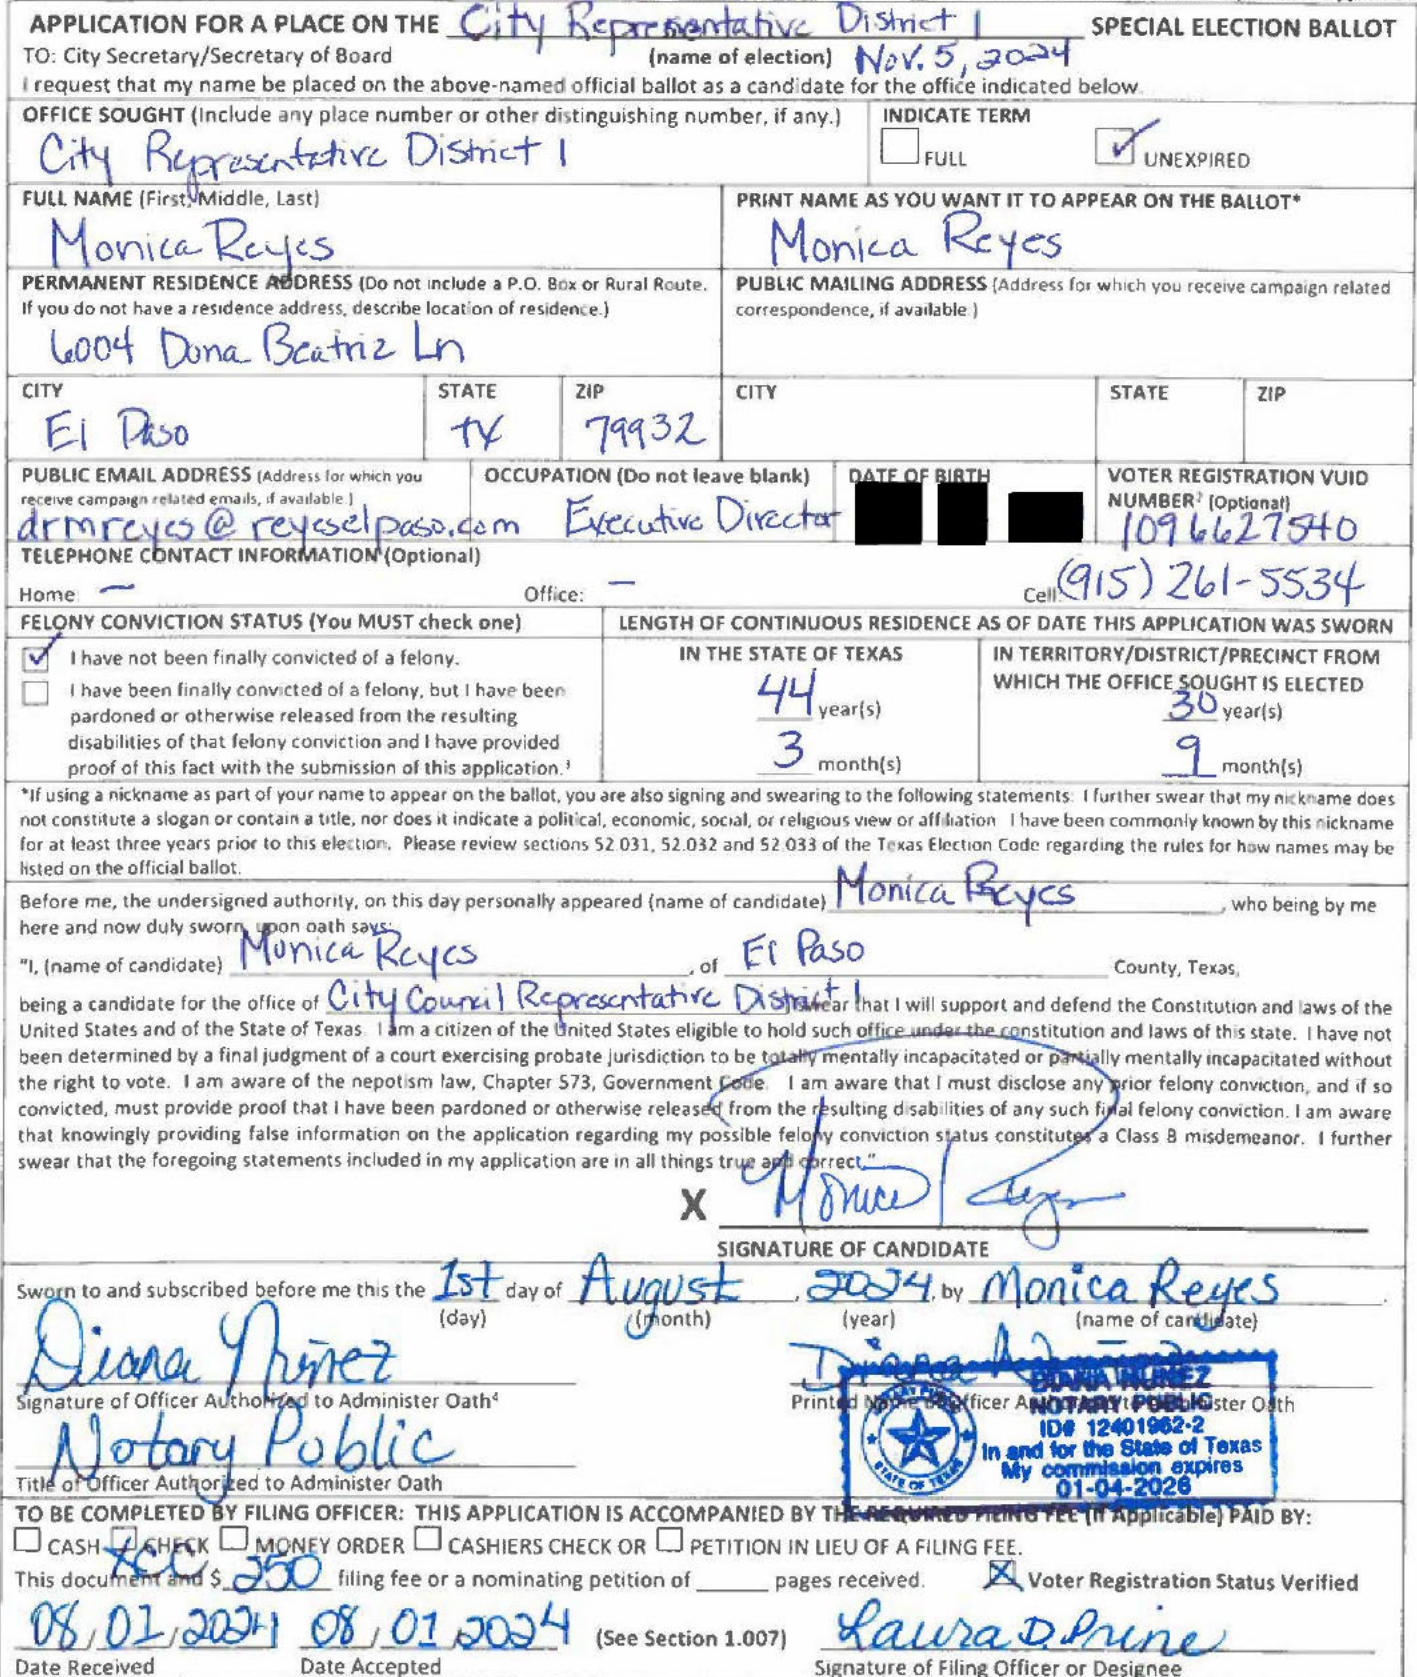 APPLICATION FOR A PLACE ON THE City Representative District 1 SPECIAL ELECTION BALLOT
TO: City Secretary/Secretary of Board (name of election) Nov. 5, 2024
I request that my name be placed on the above-named official ballot as a candidate for the office indicated below.
OFFICE SOUGHT (Include any place number or other distinguishing number, if any.) INDICATE TERM
City Representative District 1 FULL UNEXPIRED
FULL NAME (First, Middle, Last) PRINT NAME AS YOU WANT IT TO APPEAR ON THE BALLOT*
Monica Reyes Monica Reyes
PERMANENT RESIDENCE ADDRESS (Do not include a P.O. Box or Rural Route. PUBLIC MAILING ADDRESS (Address for which you receive campaign related
If you do not have a residence address, describe location of residence.) correspondence, if available.)
6004 Dona Beatriz Ln
CITY STATE ZIP CITY STATE ZIP
El Paso TX 79932
PUBLIC EMAIL ADDRESS (Address for which you OCCUPATION (Do not leave blank) DATE OF BIRTH VOTER REGISTRATION VUID
receive campaign related emails, if available.) NUMBER² (Optional)
drmreyes@reyeselpaso.com Executive Director 1096627540
TELEPHONE CONTACT INFORMATION (Optional)
Home: – Office: – Cell: (915) 261-5534
FELONY CONVICTION STATUS (You MUST check one) LENGTH OF CONTINUOUS RESIDENCE AS OF DATE THIS APPLICATION WAS SWORN
I have not been finally convicted of a felony. IN THE STATE OF TEXAS IN TERRITORY/DISTRICT/PRECINCT FROM
I have been finally convicted of a felony, but I have been WHICH THE OFFICE SOUGHT IS ELECTED
pardoned or otherwise released from the resulting 44 year(s) 30 year(s)
disabilities of that felony conviction and I have provided
proof of this fact with the submission of this application.³ 3 month(s) 9 month(s)
*If using a nickname as part of your name to appear on the ballot, you are also signing and swearing to the following statements: I further swear that my nickname does
not constitute a slogan or contain a title, nor does it indicate a political, economic, social, or religious view or affiliation. I have been commonly known by this nickname
for at least three years prior to this election. Please review sections 52.031, 52.032 and 52.033 of the Texas Election Code regarding the rules for how names may be
listed on the official ballot.
Before me, the undersigned authority, on this day personally appeared (name of candidate) Monica Reyes, who being by me
here and now duly sworn, upon oath says:
"I, (name of candidate) Monica Reyes, of El Paso County, Texas,
being a candidate for the office of City Council Representative District 1 swear that I will support and defend the Constitution and laws of the
United States and of the State of Texas. I am a citizen of the United States eligible to hold such office under the constitution and laws of this state. I have not
been determined by a final judgment of a court exercising probate jurisdiction to be totally mentally incapacitated or partially mentally incapacitated without
the right to vote. I am aware of the nepotism law, Chapter 573, Government Code. I am aware that I must disclose any prior felony conviction, and if so
convicted, must provide proof that I have been pardoned or otherwise released from the resulting disabilities of any such final felony conviction. I am aware
that knowingly providing false information on the application regarding my possible felony conviction status constitutes a Class B misdemeanor. I further
swear that the foregoing statements included in my application are in all things true and correct."
X Monica Reyes
SIGNATURE OF CANDIDATE
Sworn to and subscribed before me this the 1st day of August, 2024, by Monica Reyes.
(day) (month) (year) (name of candidate)
Diana Nuñez Diana Nuñez
Signature of Officer Authorized to Administer Oath⁴ Printed Name of Officer Authorized to Administer Oath
DIANA NUÑEZ
NOTARY PUBLIC
ID# 12401962-2
In and for the State of Texas
My commission expires
01-04-2026
NOTARY PUBLIC
STATE OF TEXAS
Notary Public
Title of Officer Authorized to Administer Oath
TO BE COMPLETED BY FILING OFFICER: THIS APPLICATION IS ACCOMPANIED BY THE REQUIRED FILING FEE (If Applicable) PAID BY:
CASH CHECK MONEY ORDER CASHIERS CHECK OR PETITION IN LIEU OF A FILING FEE.
This document and $ 250 filing fee or a nominating petition of pages received. Voter Registration Status Verified
08/01/2024 08/01/2024 (See Section 1.007) Laura D. Prine
Date Received Date Accepted Signature of Filing Officer or Designee